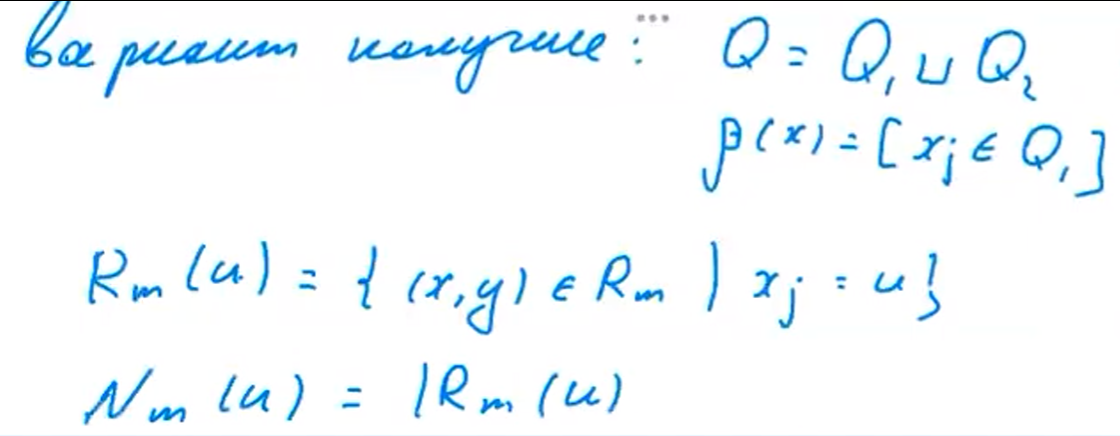 вариант получше: Q = Q₁ ⊔ Q₂
β(x) = [xⱼ ∈ Q₁]
Rₘ(u) = { (x,y) ∈ Rₘ | xⱼ = u }
Nₘ(u) = |Rₘ(u)